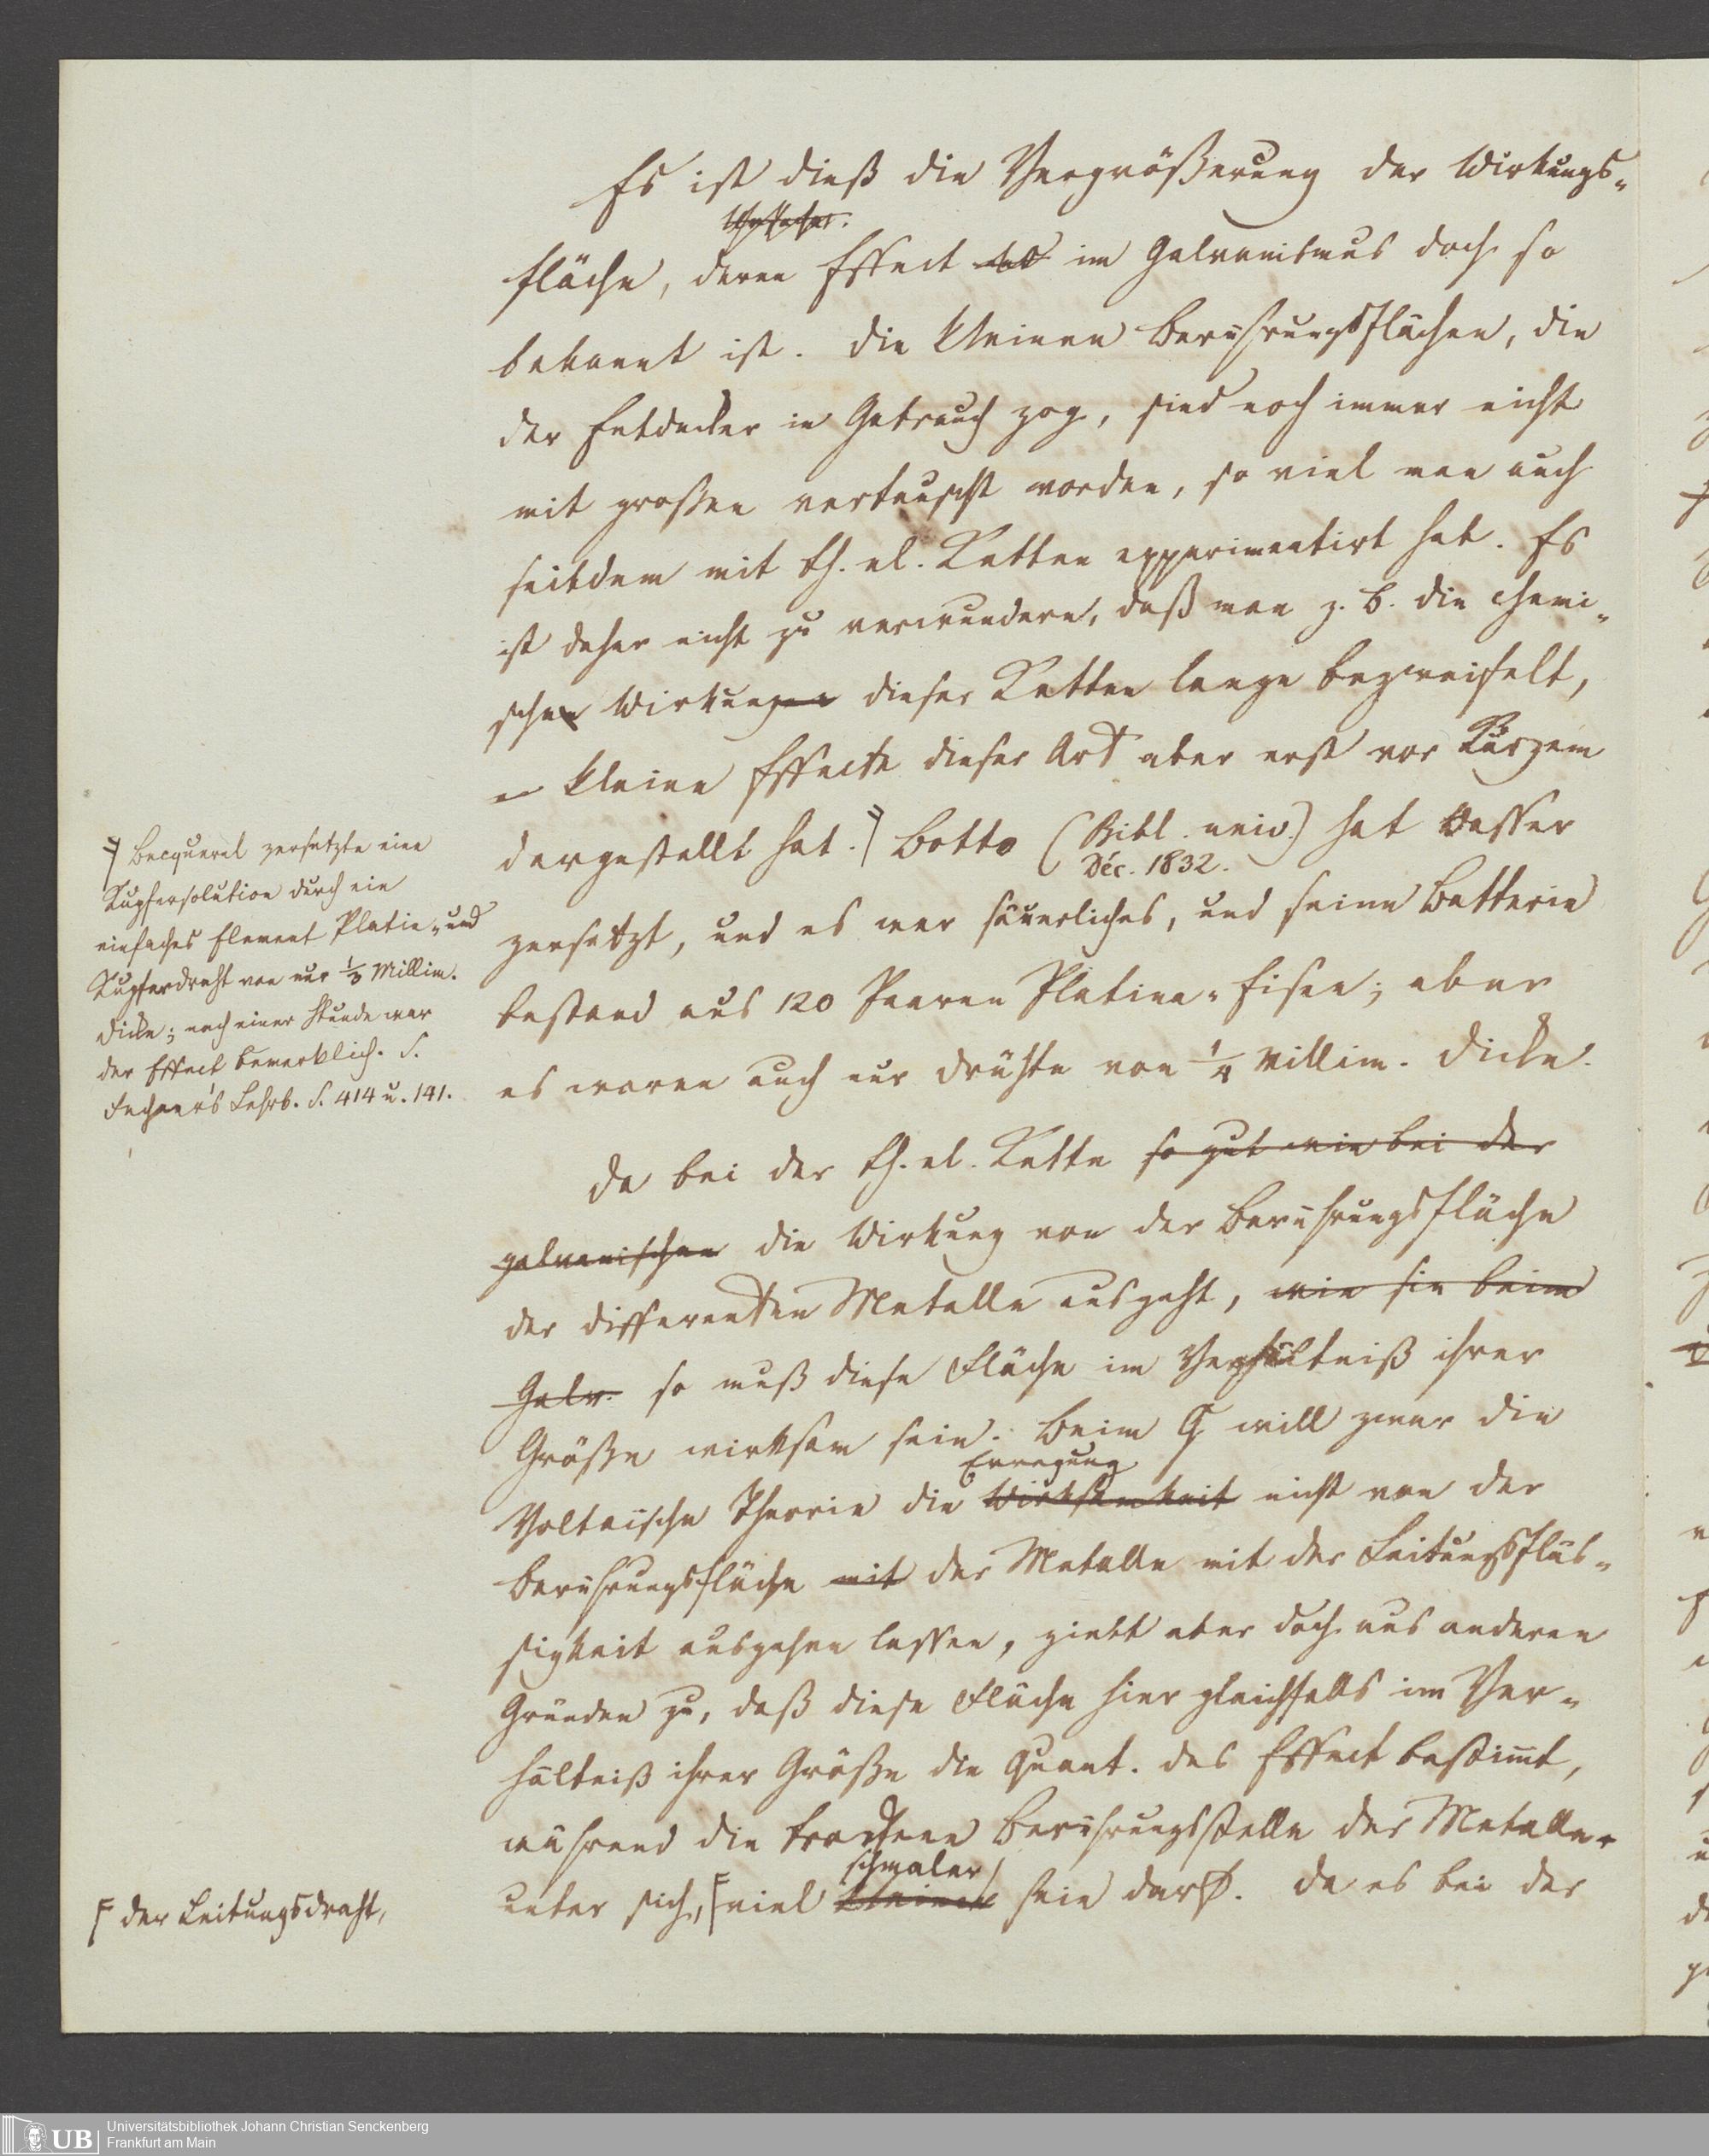 Es ist dieß die Vergrößerung der Wirkungs-
fläche, deren Effect im Galvanismus doch so
bekannt ist. Die kleinen Berührungsflächen, die
der Entdecker in Gebrauch zog, sind noch immer nicht
mit großen vertauscht worden, so viel man auch
seitdem mit th. el. Ketten experimentirt hat. Es
ist daher nicht zu verwundern, daß man z. B. die chemi-
sche Wirkung dieser Ketten lange bezweifelt,
kleine Effecte dieser Art aber erst vor Kurzem
dargestellt hat. Botto (Bibl. univ.) hat Wasser
Déc. 1832.
zersetzt, und es war säuerliches, und seine Batterie
bestand aus 120 Paaren Platina-Eisen; aber
es waren auch nur Drähte von 1/4 Millim. Dicke.
Becquerel zersetzte eine
Kupfersolution durch ein
einfaches Element Platin- und
Kupferdraht von nur 1/3 Millim.
Dicke; nach einer Stunde war
der Effect bemerklich. S.
Fechner's Lehrb. S. 414 u. 141.
Da bei der th. el. Kette so gut wie bei der
galvanischen die Wirkung von der Berührungsfläche
der differenten Metalle ausgeht, wie sie beim
Galv. so muß diese Fläche im Verhältniß ihrer
Größe wirksam sein. Beim G will zwar die
Erregung
Voltaische Theorie die Wirksamkeit nicht von der
Berührungsfläche mit der Metalle mit der Leitungsflüs-
sigkeit ausgehen lassen, giebt aber doch aus anderen
Gründen zu, daß diese Fläche hier gleichfalls im Ver-
hältniß ihrer Größe die Quant. des Effect bestimmt,
während die trockene Berührungsstelle der Metalle
schmaler
unter sich, viel kleiner sein darf. Da es bei der
der Leitungsdraht,
UB
Universitätsbibliothek Johann Christian Senckenberg
Frankfurt am Main